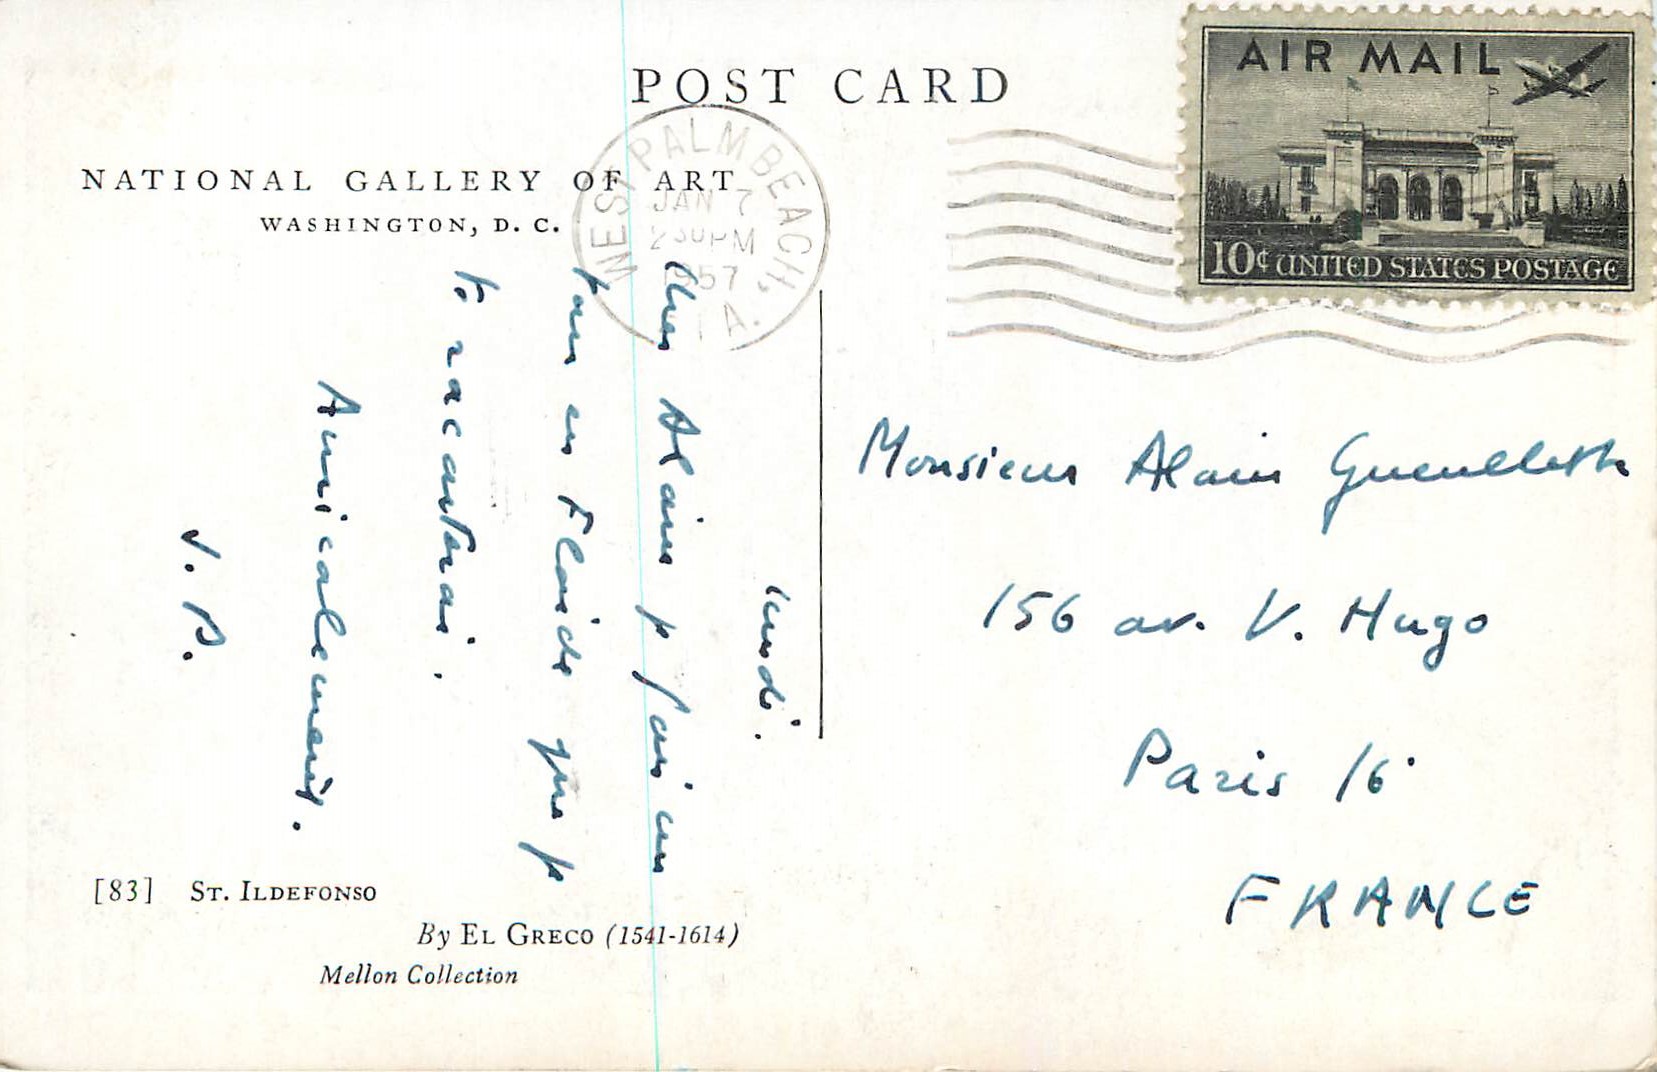 POST CARD
NATIONAL GALLERY OF ART
WASHINGTON, D. C.
WEST PALM BEACH,
JAN 7
2 30 PM
1957
FLA.
AIR MAIL
10¢ UNITED STATES POSTAGE
lundi.
Cher Alain je suis un
jour en Floride que je
te raconterai.
Amicalement.
J. P.
Monsieur Alain
156 av. V. Hugo
Paris 16
FRANCE
[83] ST. ILDEFONSO
By EL GRECO (1541-1614)
Mellon Collection